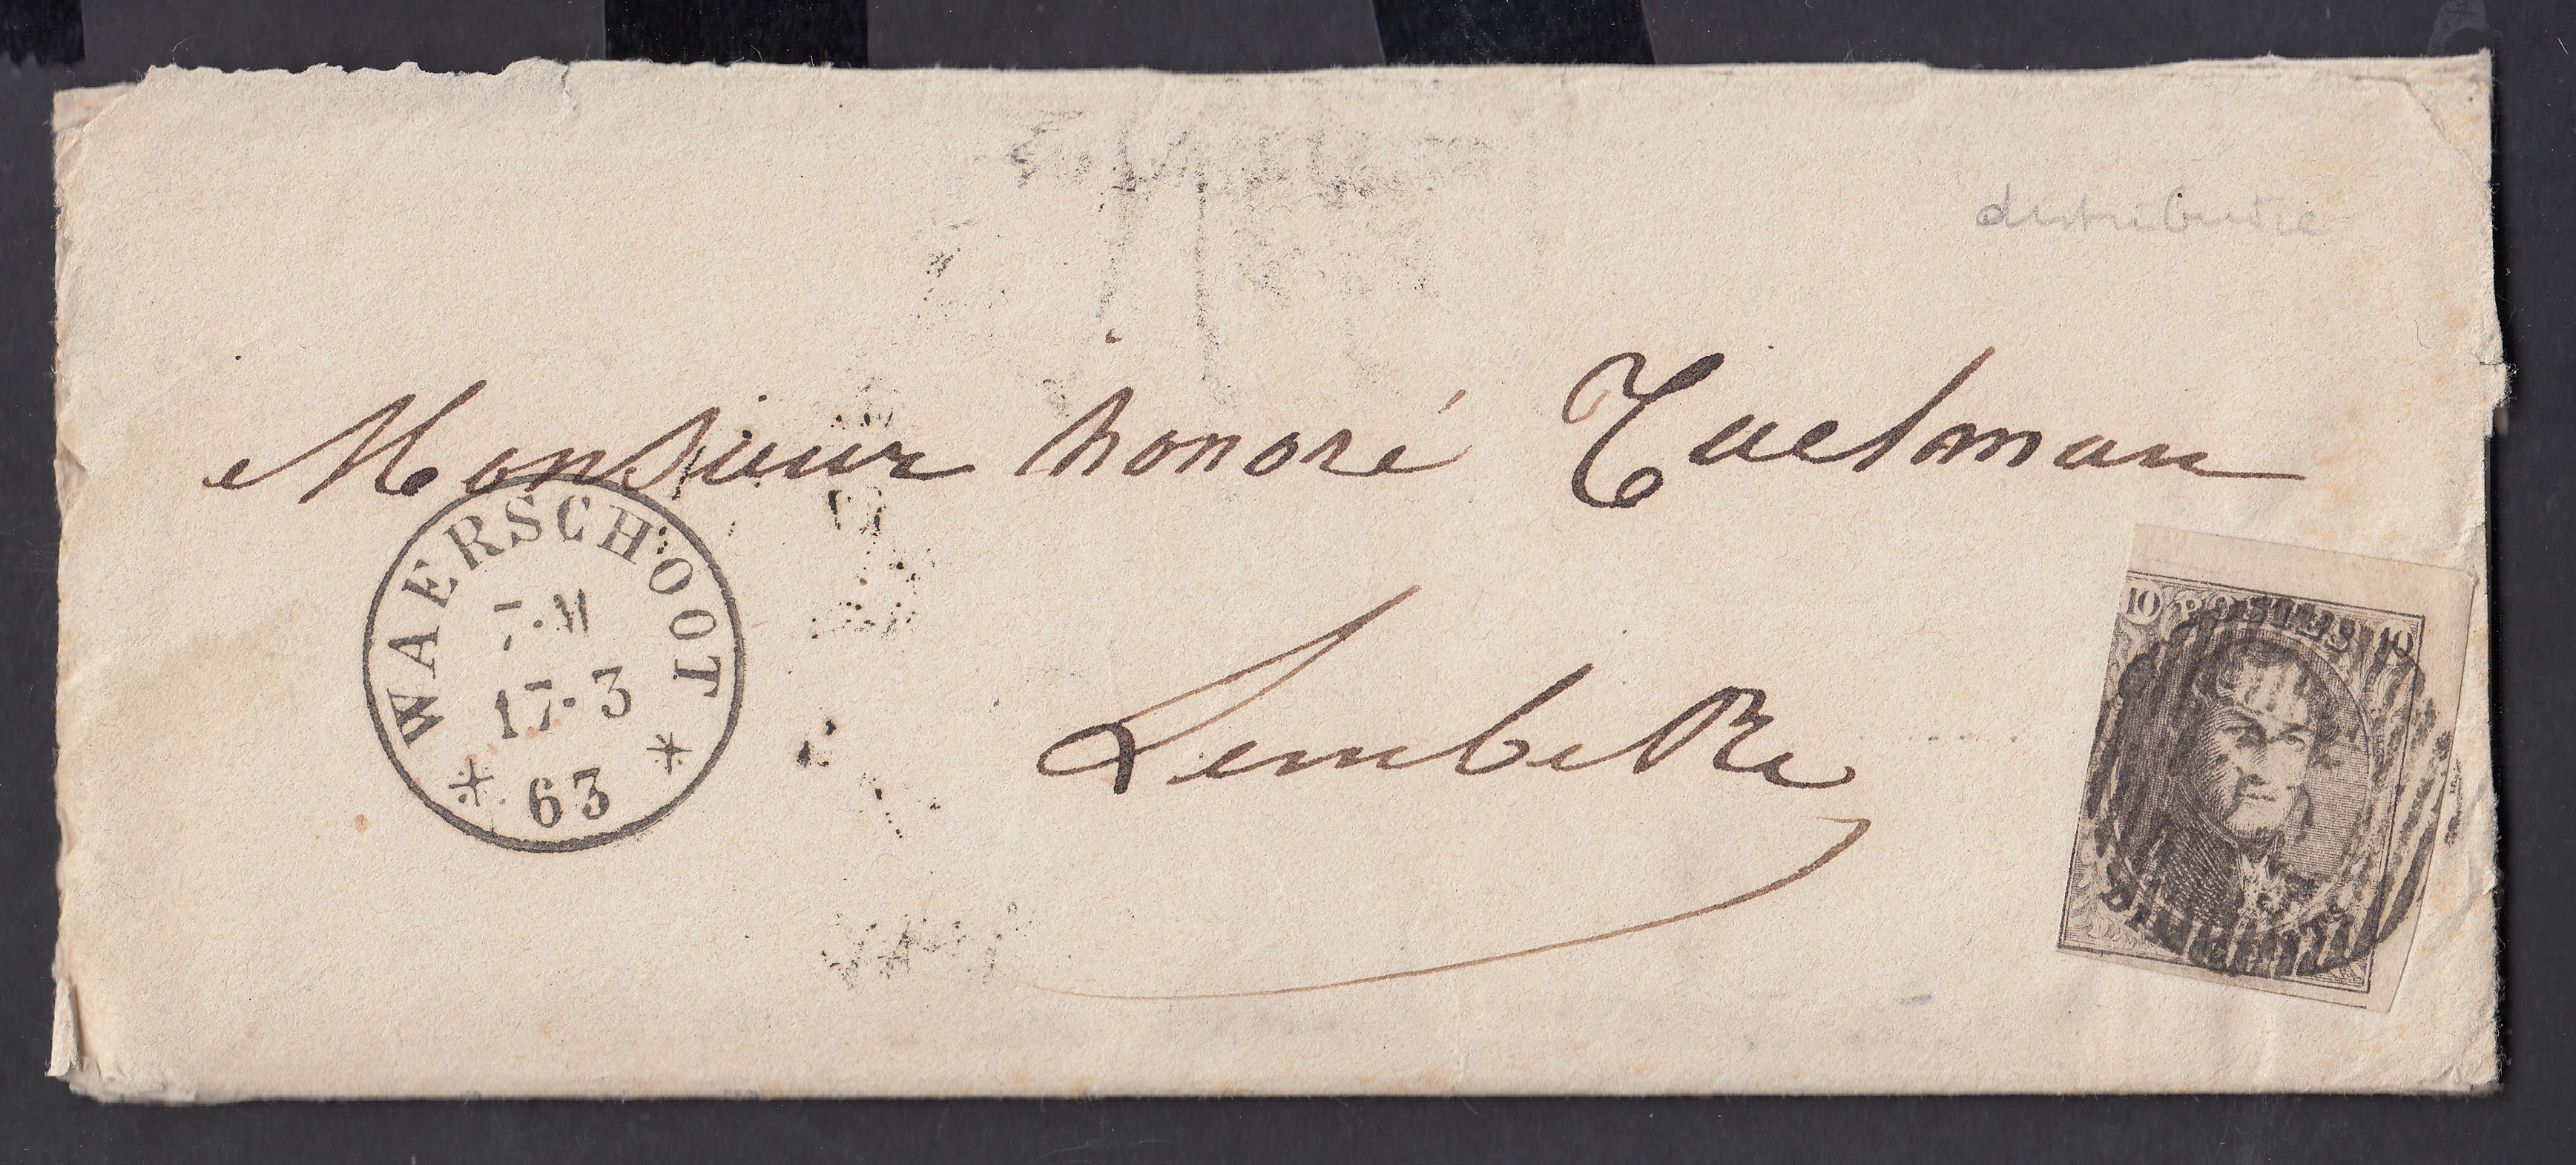 distributie
Monsieur honoré Tuelman
WAERSCHOOT
7·M
17·3
63
Lembeke
10 POSTES 10